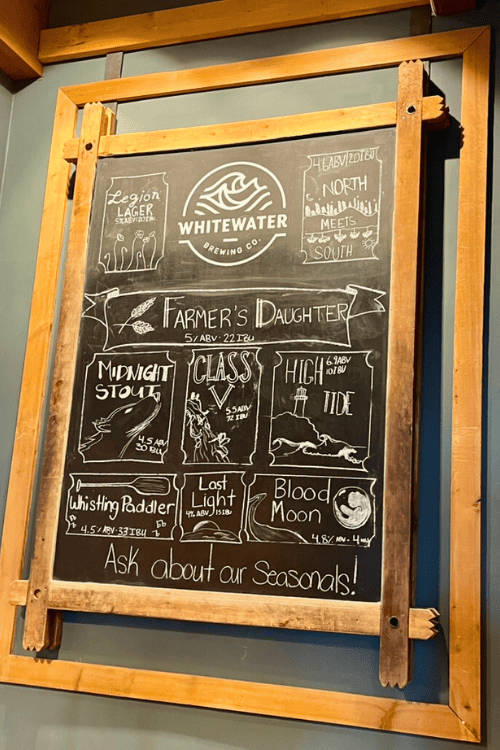 Legion
LAGER
5%ABV·20IBU
WHITEWATER
BREWING CO.
4.6ABV/20IBU
NORTH
MEETS
SOUTH
FARMER'S DAUGHTER
5%ABV·22IBU
MIDNIGHT
STOUT
4.5 ABV
30 IBU
CLASS
V
5.5 ABV
72 IBU
HIGH
6.9ABV
10IBU
TIDE
Whistling Paddler
4.5%ABV·33IBU
Last
Light
4% ABV 15IBU
Blood
Moon
4.8% ABV -
Ask about our Seasonals!